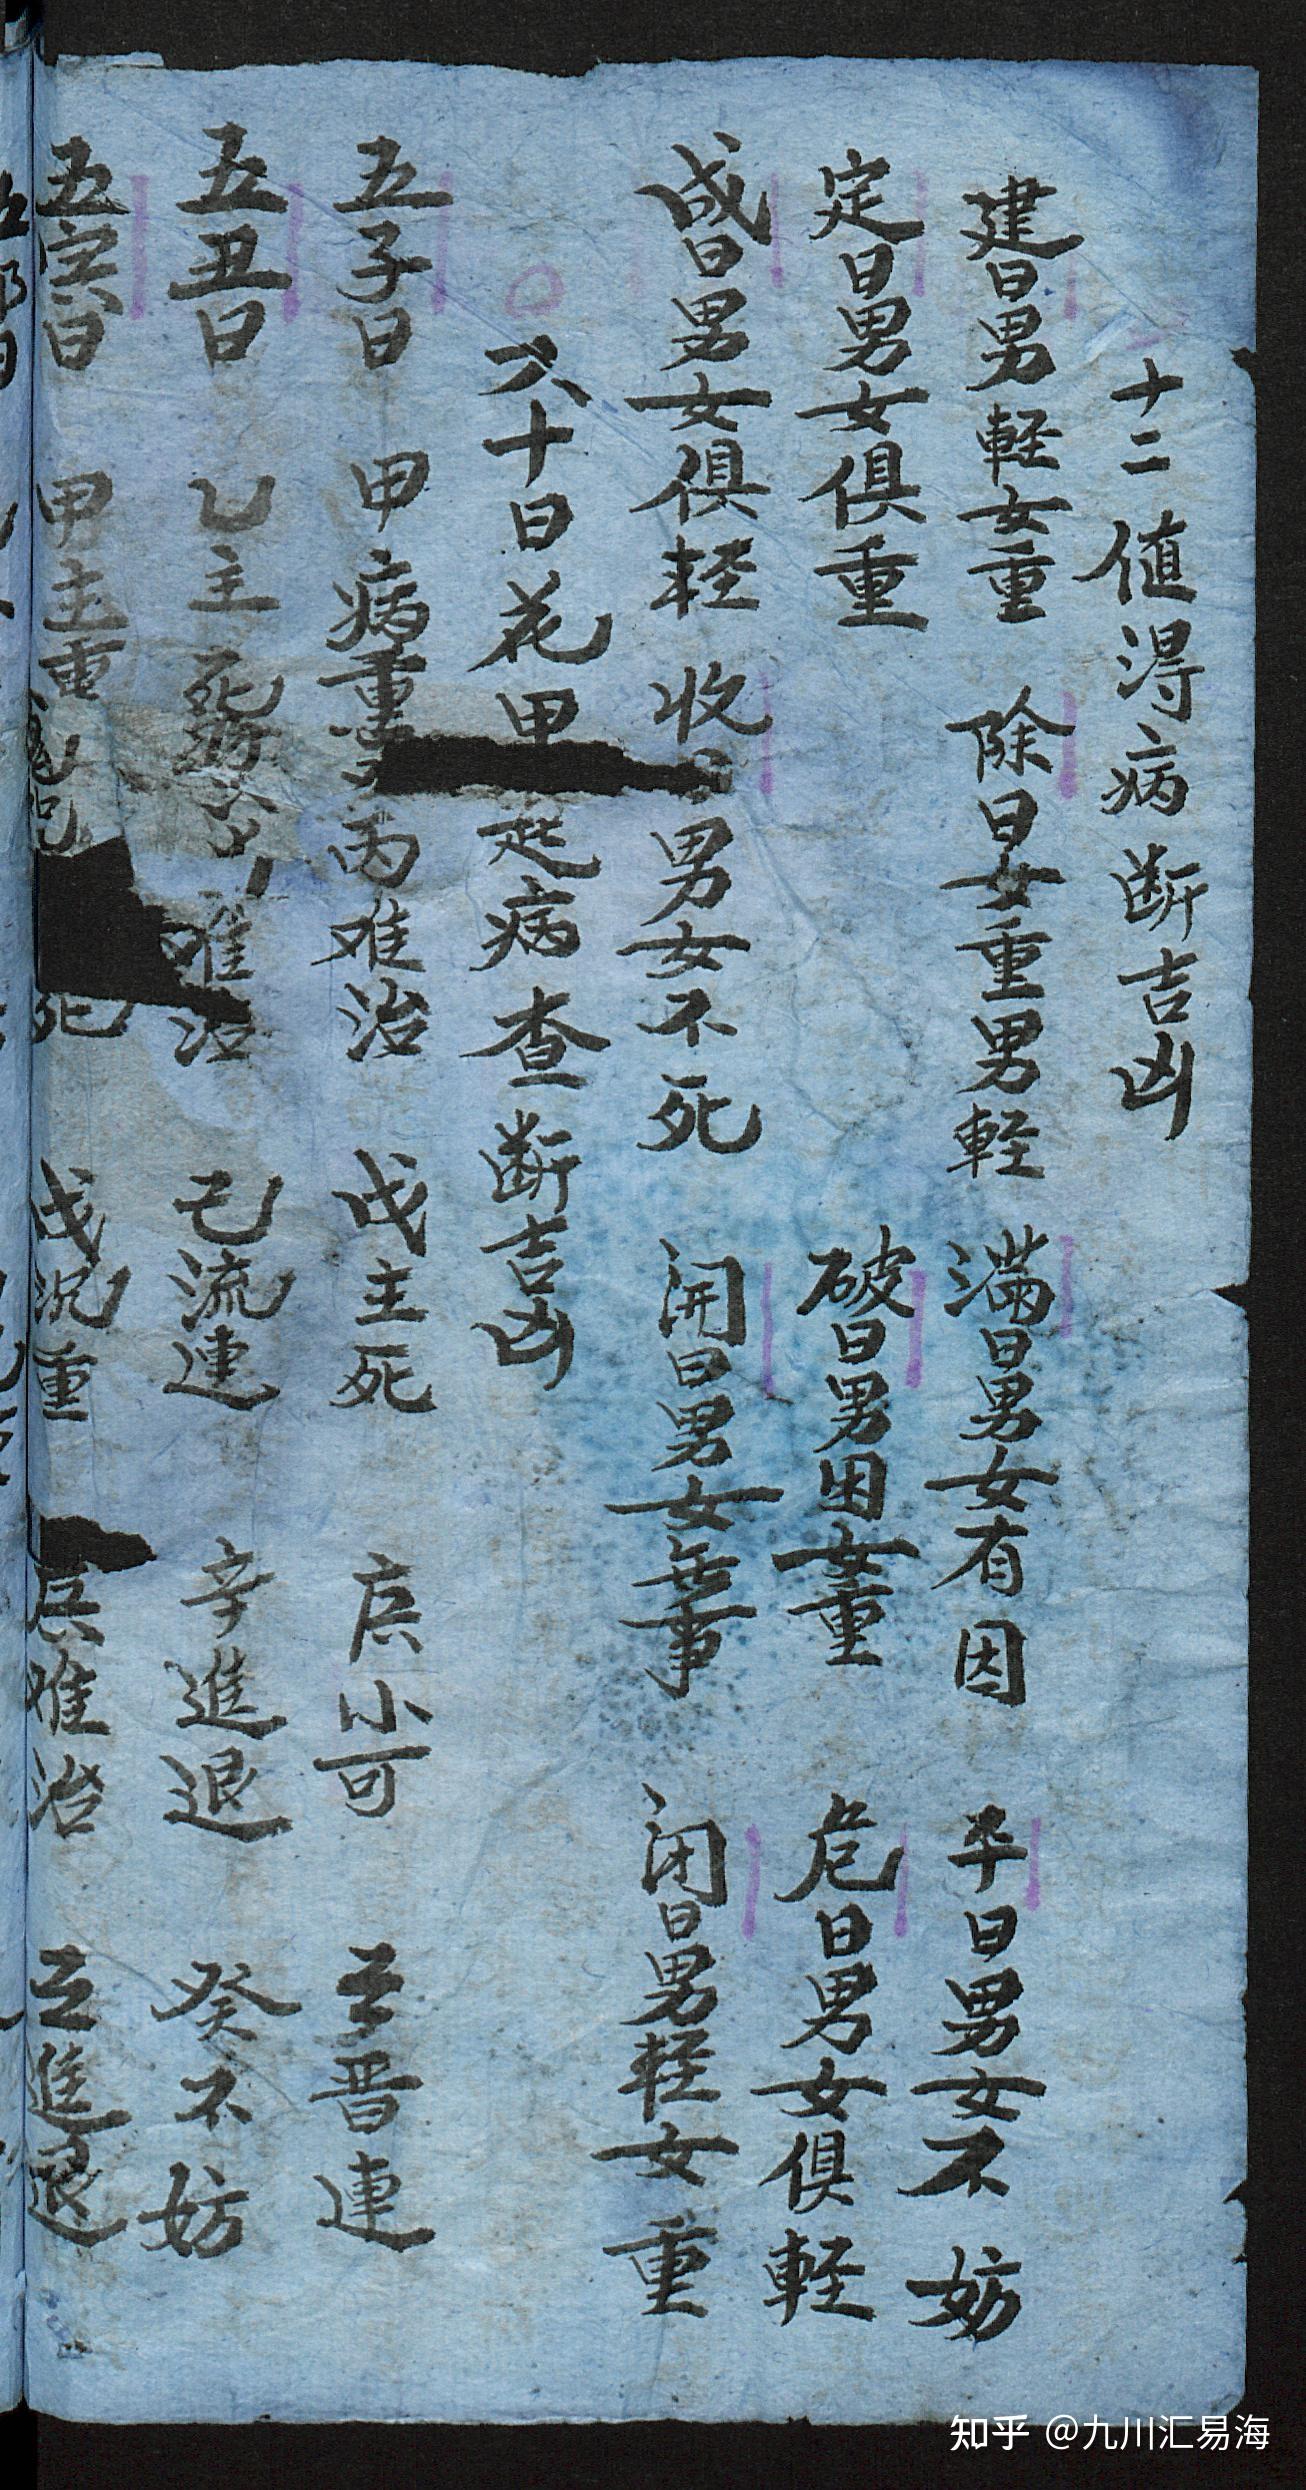 十二值得病断吉凶
建日男軽女重 除日女重男軽 满日男女有因 平日男女不妨
定日男女俱重 破日男困女重 危日男女俱軽
成日男女俱軽 收日男女不死 闭日男女無事 闭日男軽女重
六十日花甲 起病查断吉凶
五子日 甲病重 丙难治 戊主死 庚小可 壬晋連
五丑日 乙主死 难治 己流連 辛進退 癸不妨
五寅日 甲主重 死 戊沉重 庚难治 壬進退
知乎 @九川汇易海